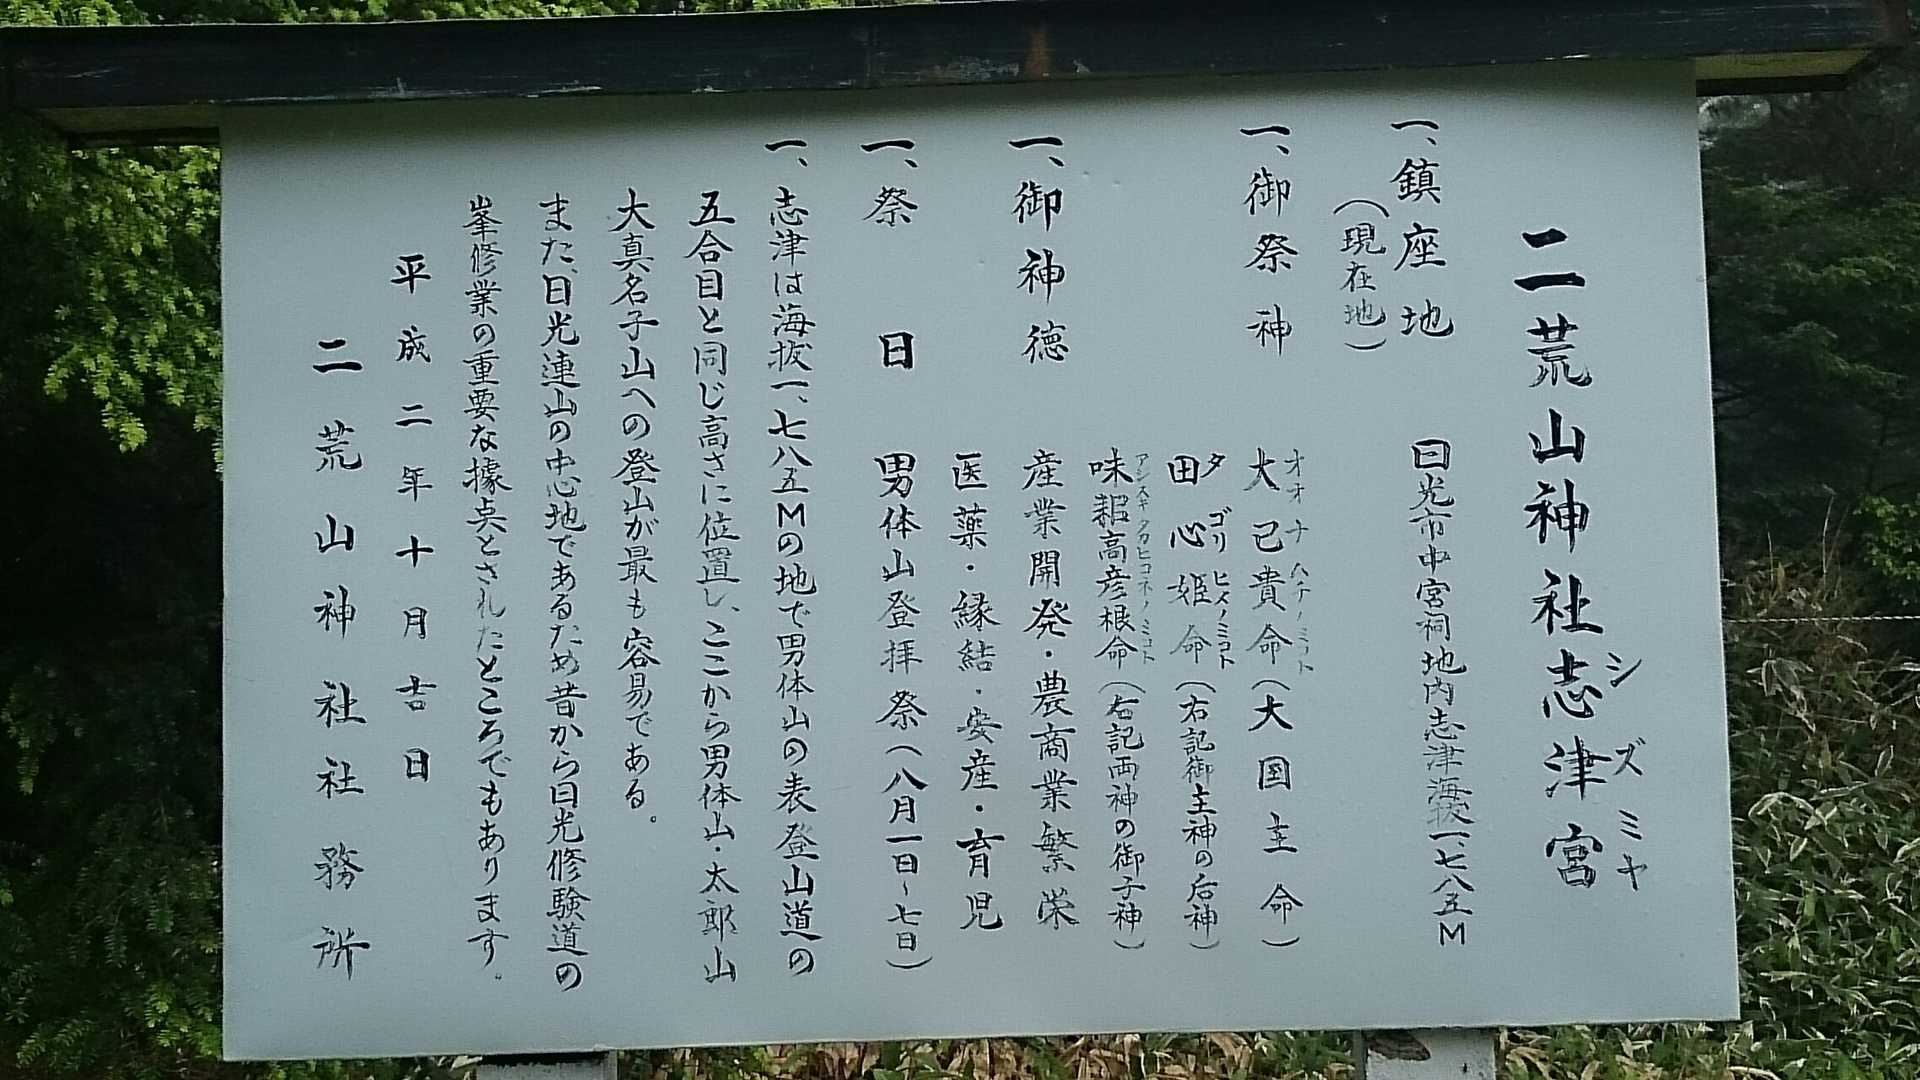 二荒山神社志津宮
シズミヤ
一、鎮座地
(現在地)
日光市中宮祠地内志津海抜一、七八五M
一、御祭神
大己貴命(大国主命)
オオナムチノミコト
田心姫命(右記御主神の后神)
タゴリヒメノミコト
味耜高彦根命(右記両神の御子神)
アジスキタカヒコネノミコト
一、御神徳
産業開発・農商業繁栄
医薬・縁結・安産・育児
一、祭日
男体山登拝祭(八月一日~七日)
一、志津は海抜一、七八五Mの地で男体山の表登山道の
五合目と同じ高さに位置し、ここから男体山・太郎山
大真名子山への登山が最も容易である。
また、日光連山の中心地であるため昔から日光修験道の
峯修業の重要な據点とされたところでもあります。
平成二年十月吉日
二荒山神社社務所